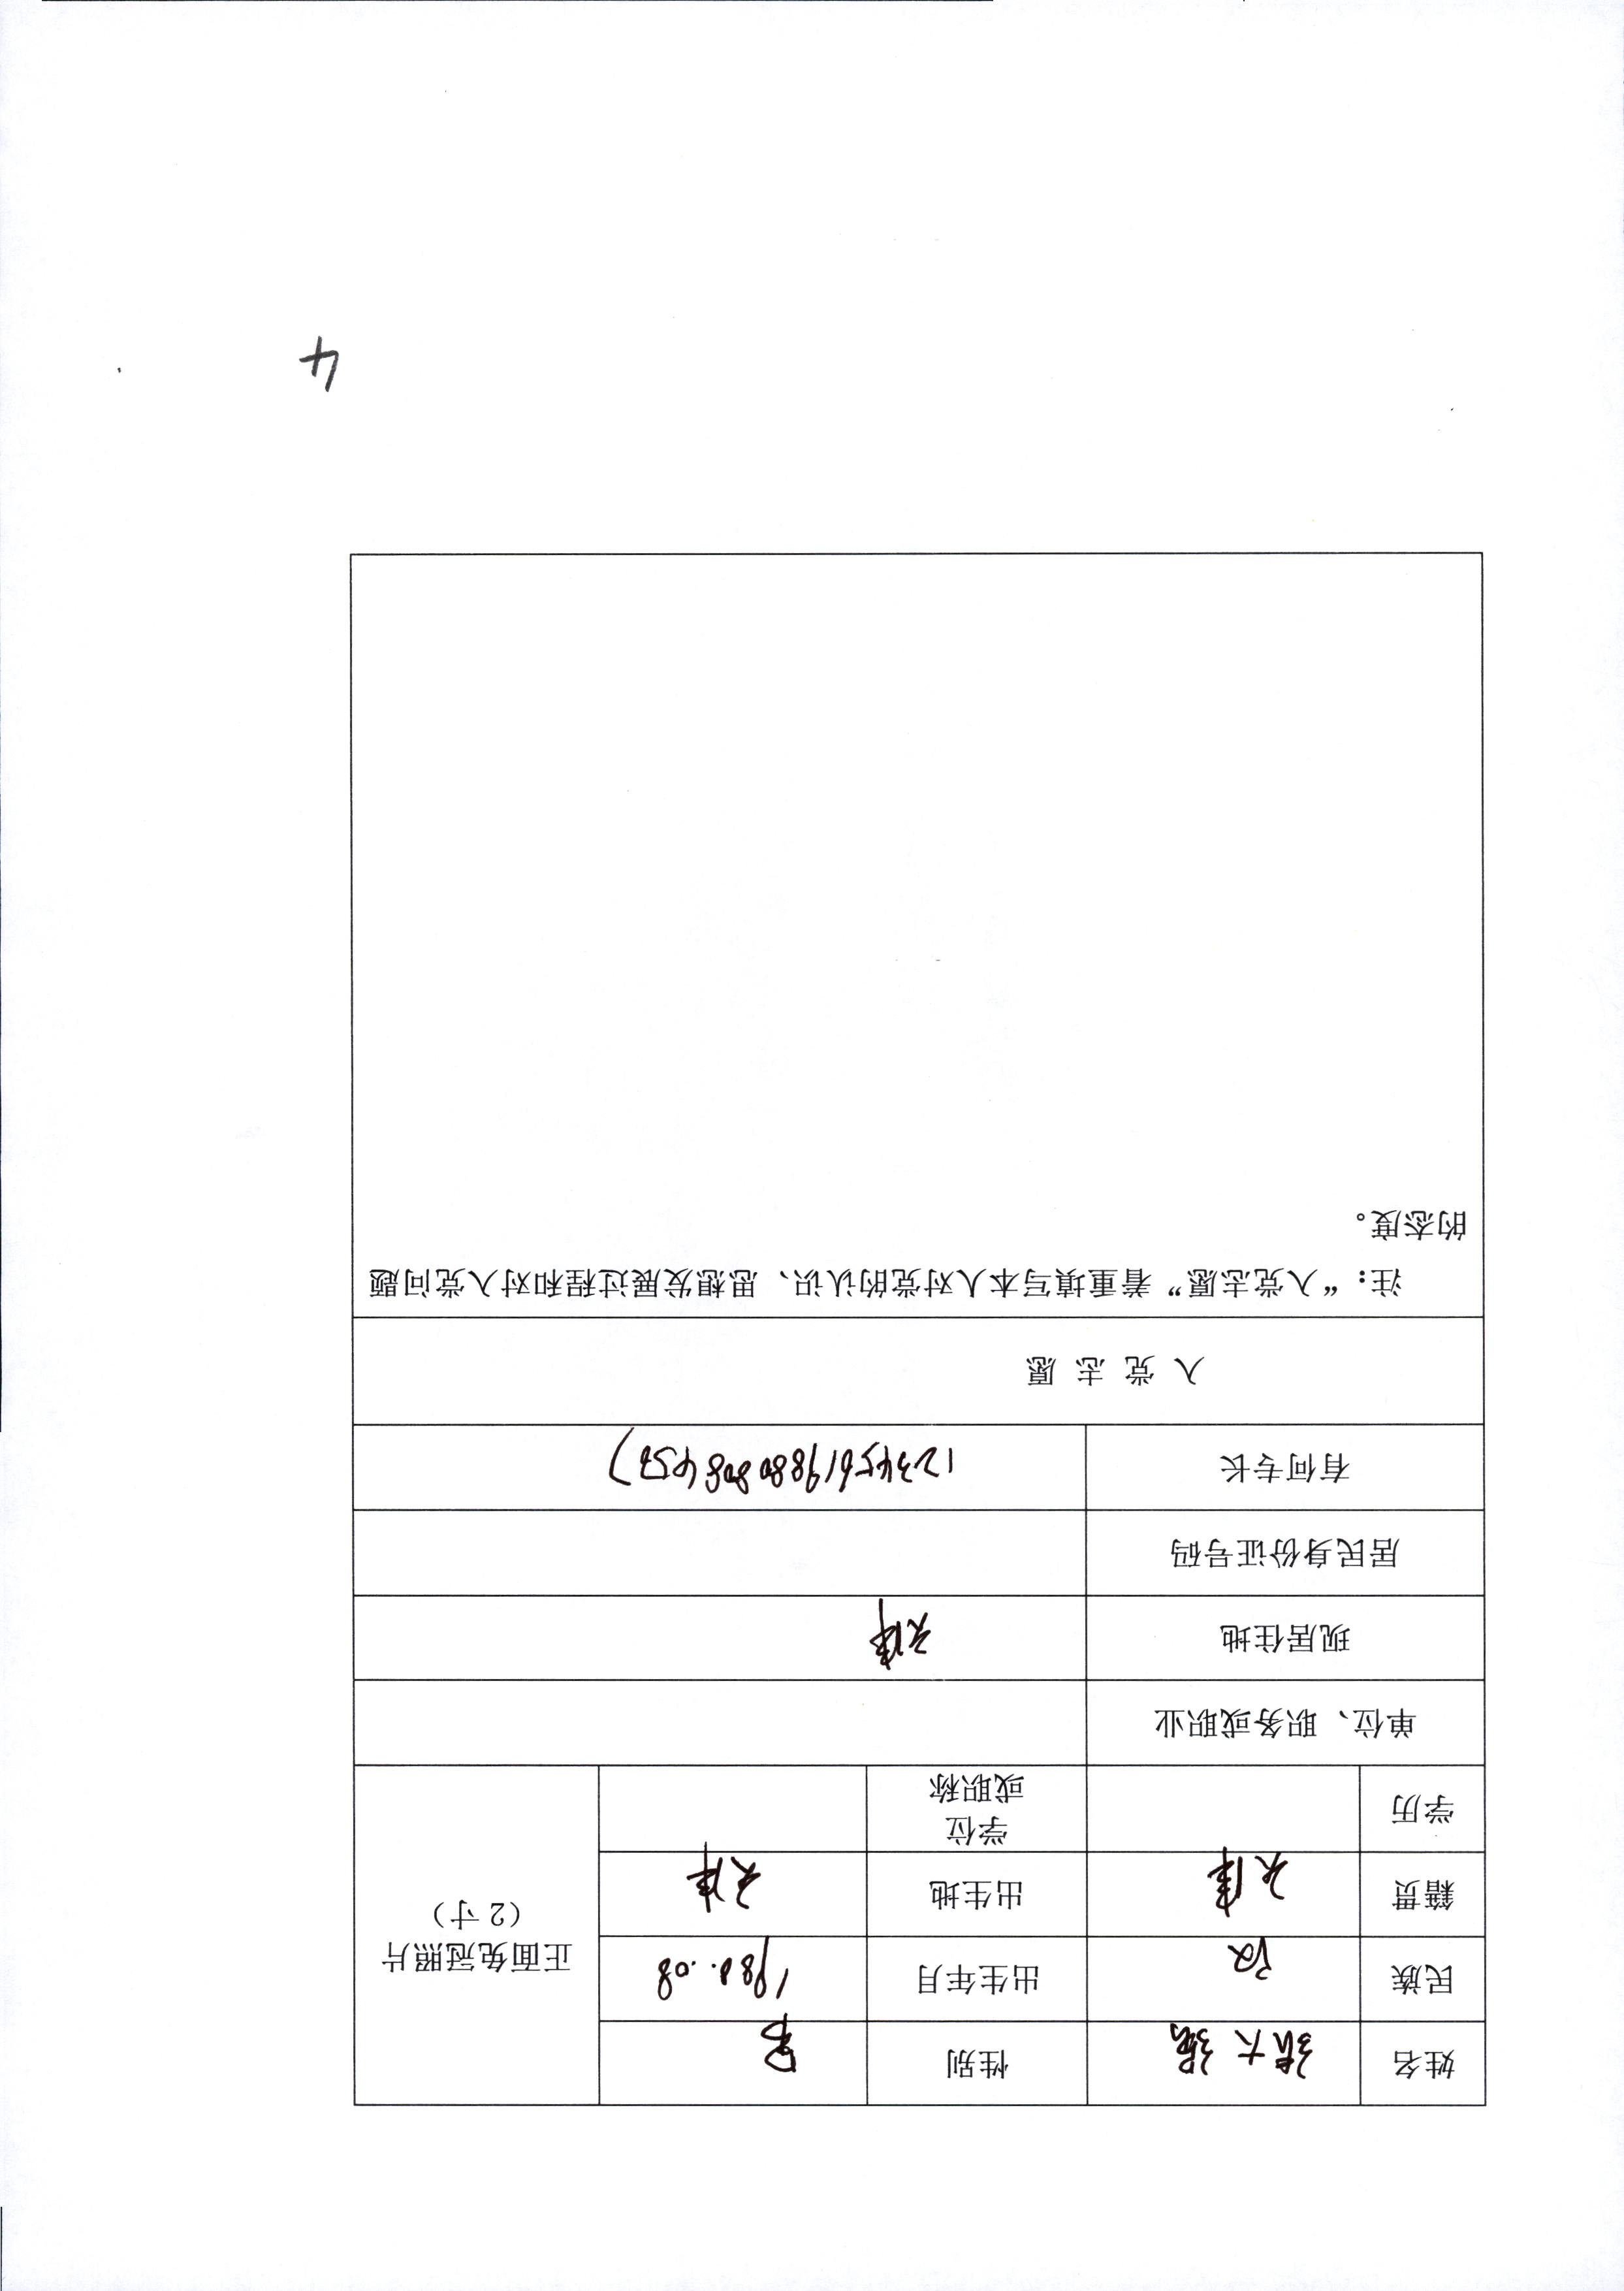 姓名 张大强 性别 男
民族 汉 出生年月 1988.08
正面免冠照片
（2寸）
籍贯 天津 出生地 天津
学历 学位
或职称
单位、职务或职业
现居住地 天津
居民身份证号码
有何专长 123456198808084567
入 党 志 愿
注：“入党志愿”着重填写本人对党的认识、思想发展过程和对入党问题
的态度。
4